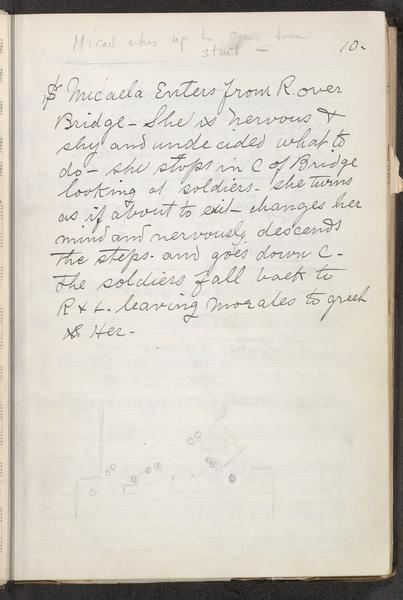 Micael enters up to down
street -
10.
Micaela Enters from R over
Bridge - She is nervous &
shy and undecided what to
do - she stops in C of Bridge
looking at soldiers - she turns
as if about to exit - changes her
mind and nervously descends
the steps - and goes down C -
The soldiers fall back to
R & L. leaving Morales to greet
Her -